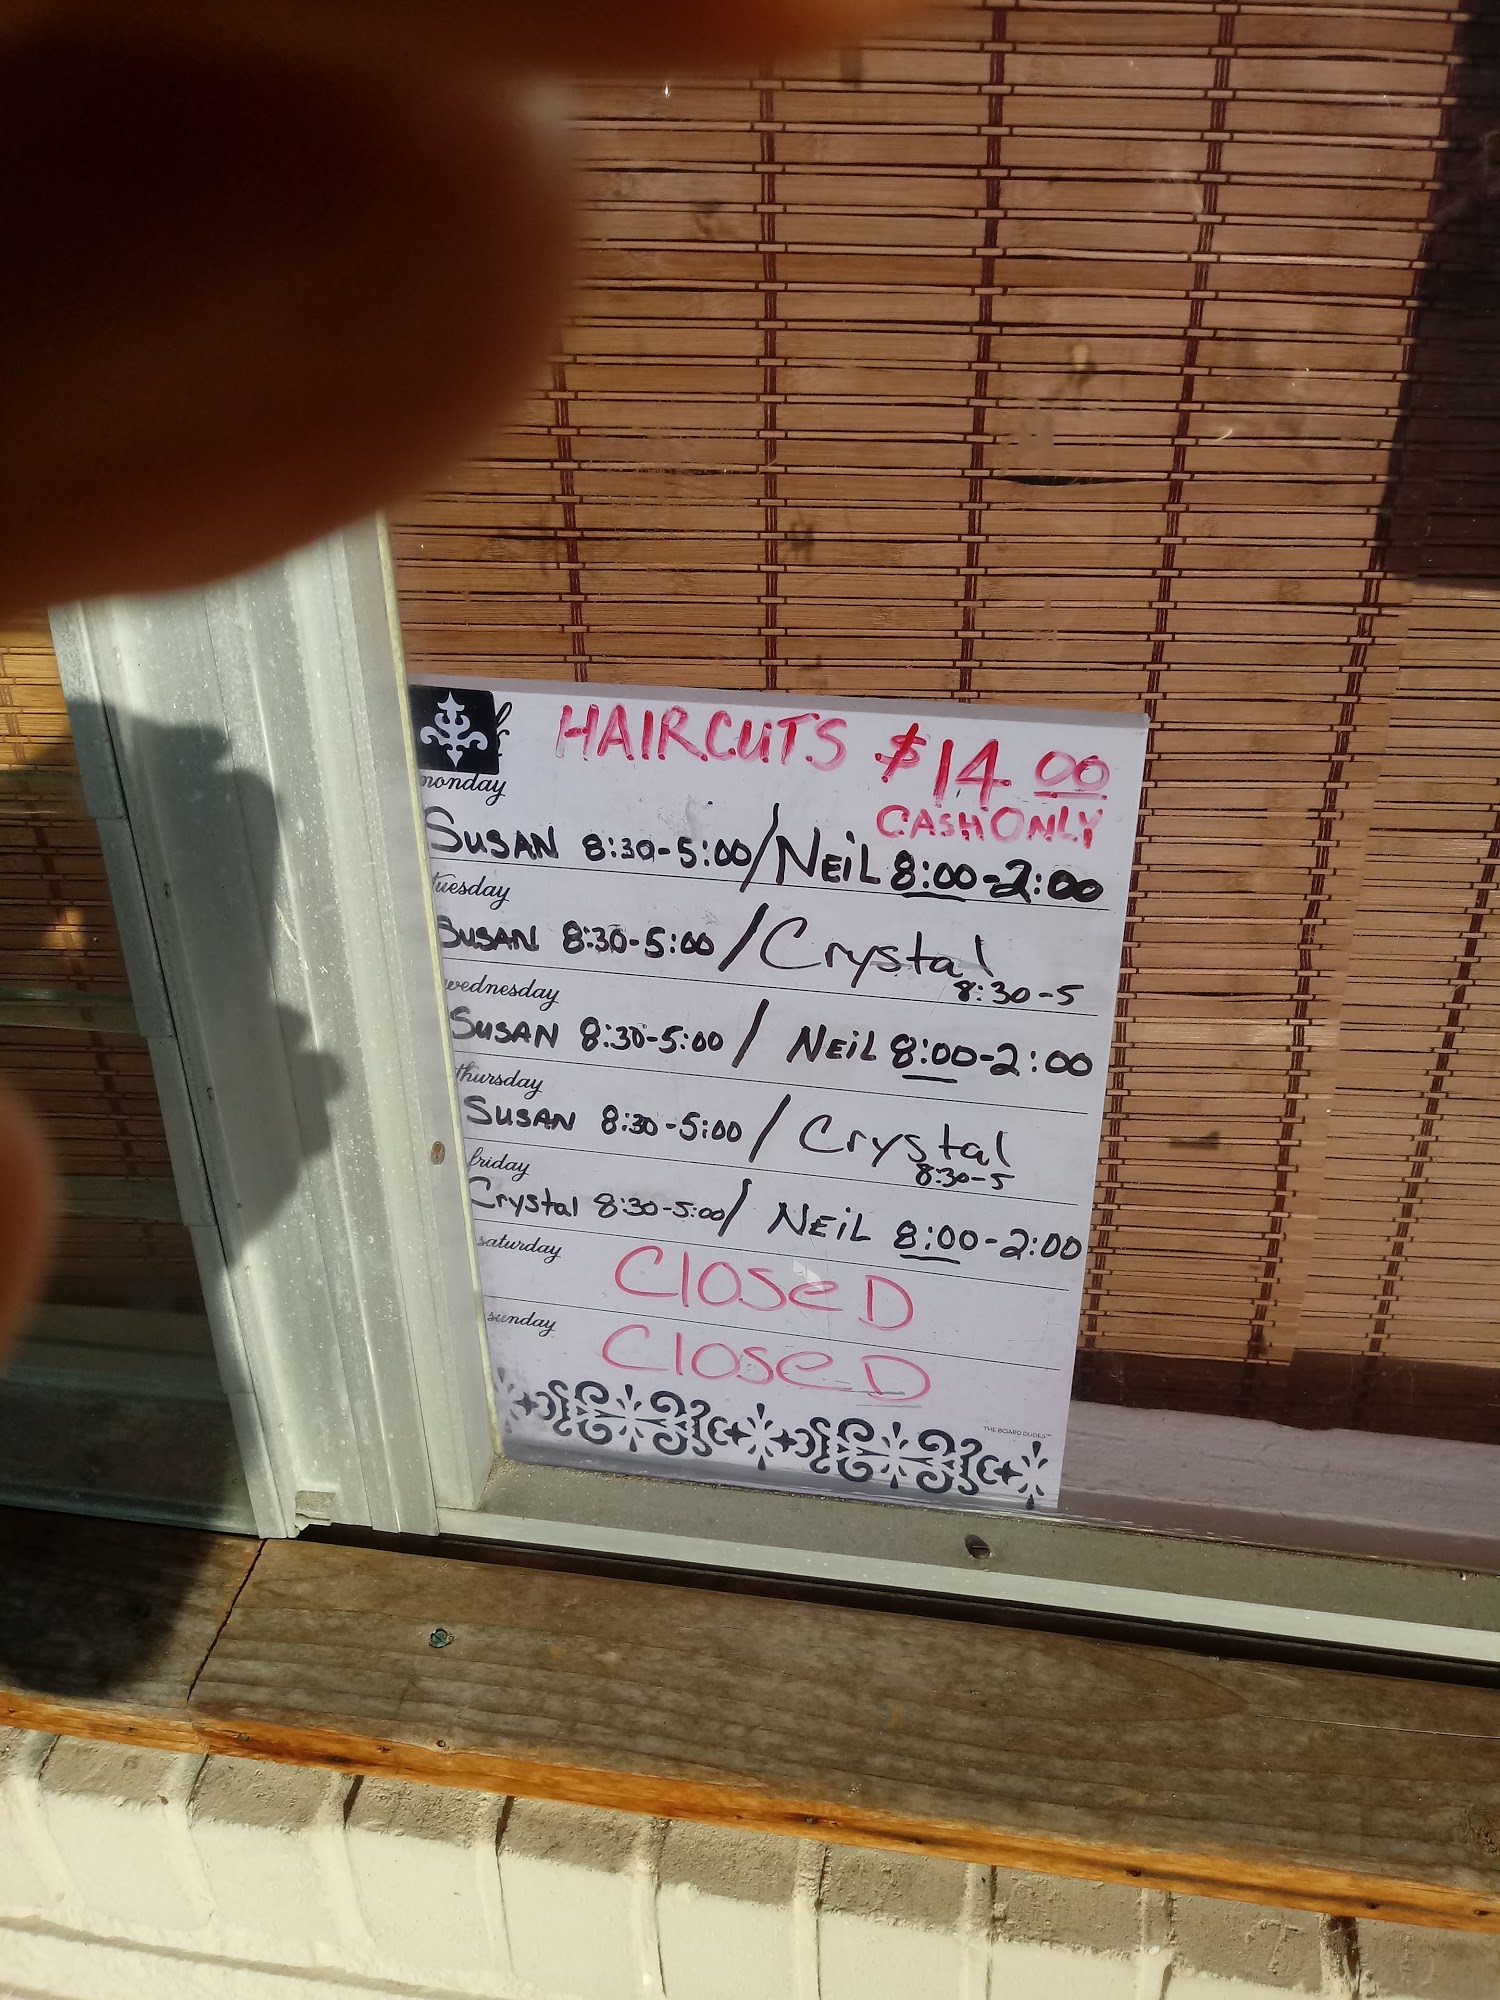 HAIRCUTS $14.00
CASH ONLY
monday
SUSAN 8:30-5:00/NEiL 8:00-2:00
tuesday
SUSAN 8:30-5:00/Crystal
8:30-5
wednesday
SUSAN 8:30-5:00/ NEiL 8:00-2:00
thursday
SUSAN 8:30-5:00/ Crystal
8:30-5
friday
Crystal 8:30-5:00/ NEiL 8:00-2:00
saturday
CloseD
sunday
CloseD
THE BOARD DUDES™